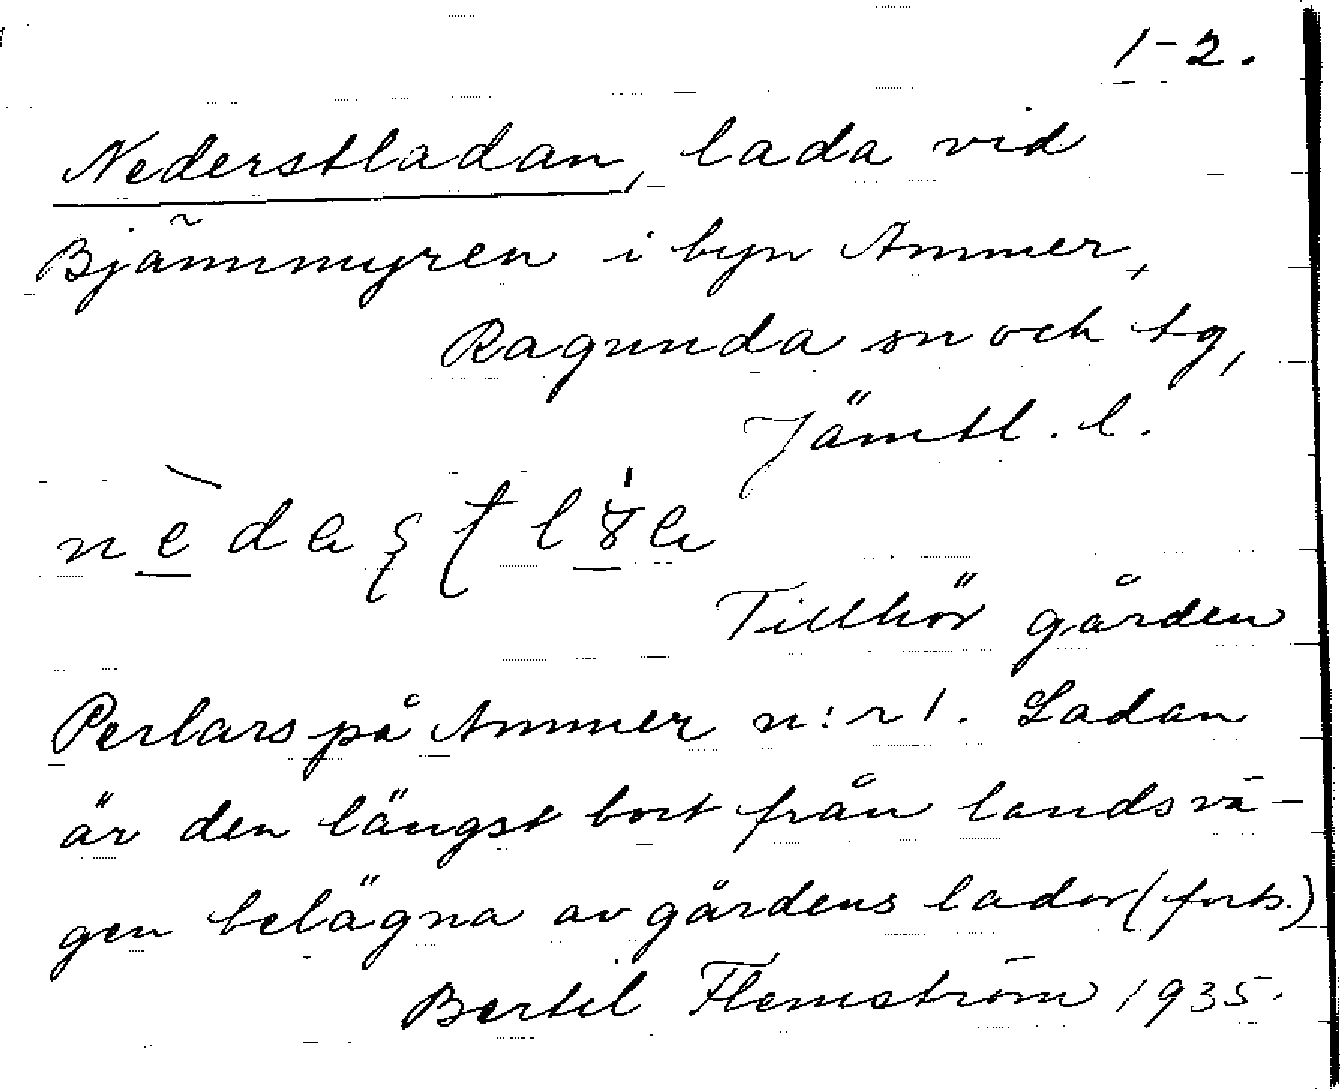 1-2.
Nederstladan, lada vid
Bjännmyren i byn Ammer,
Ragunda sn och tg,
Jämtl. l.
Tillhör gården
Perlars på Ammer n:r 1. Ladan
är den längst bort från landsvä-
gen belägna av gårdens lador (forts.)
Bertil Flemström 1935.